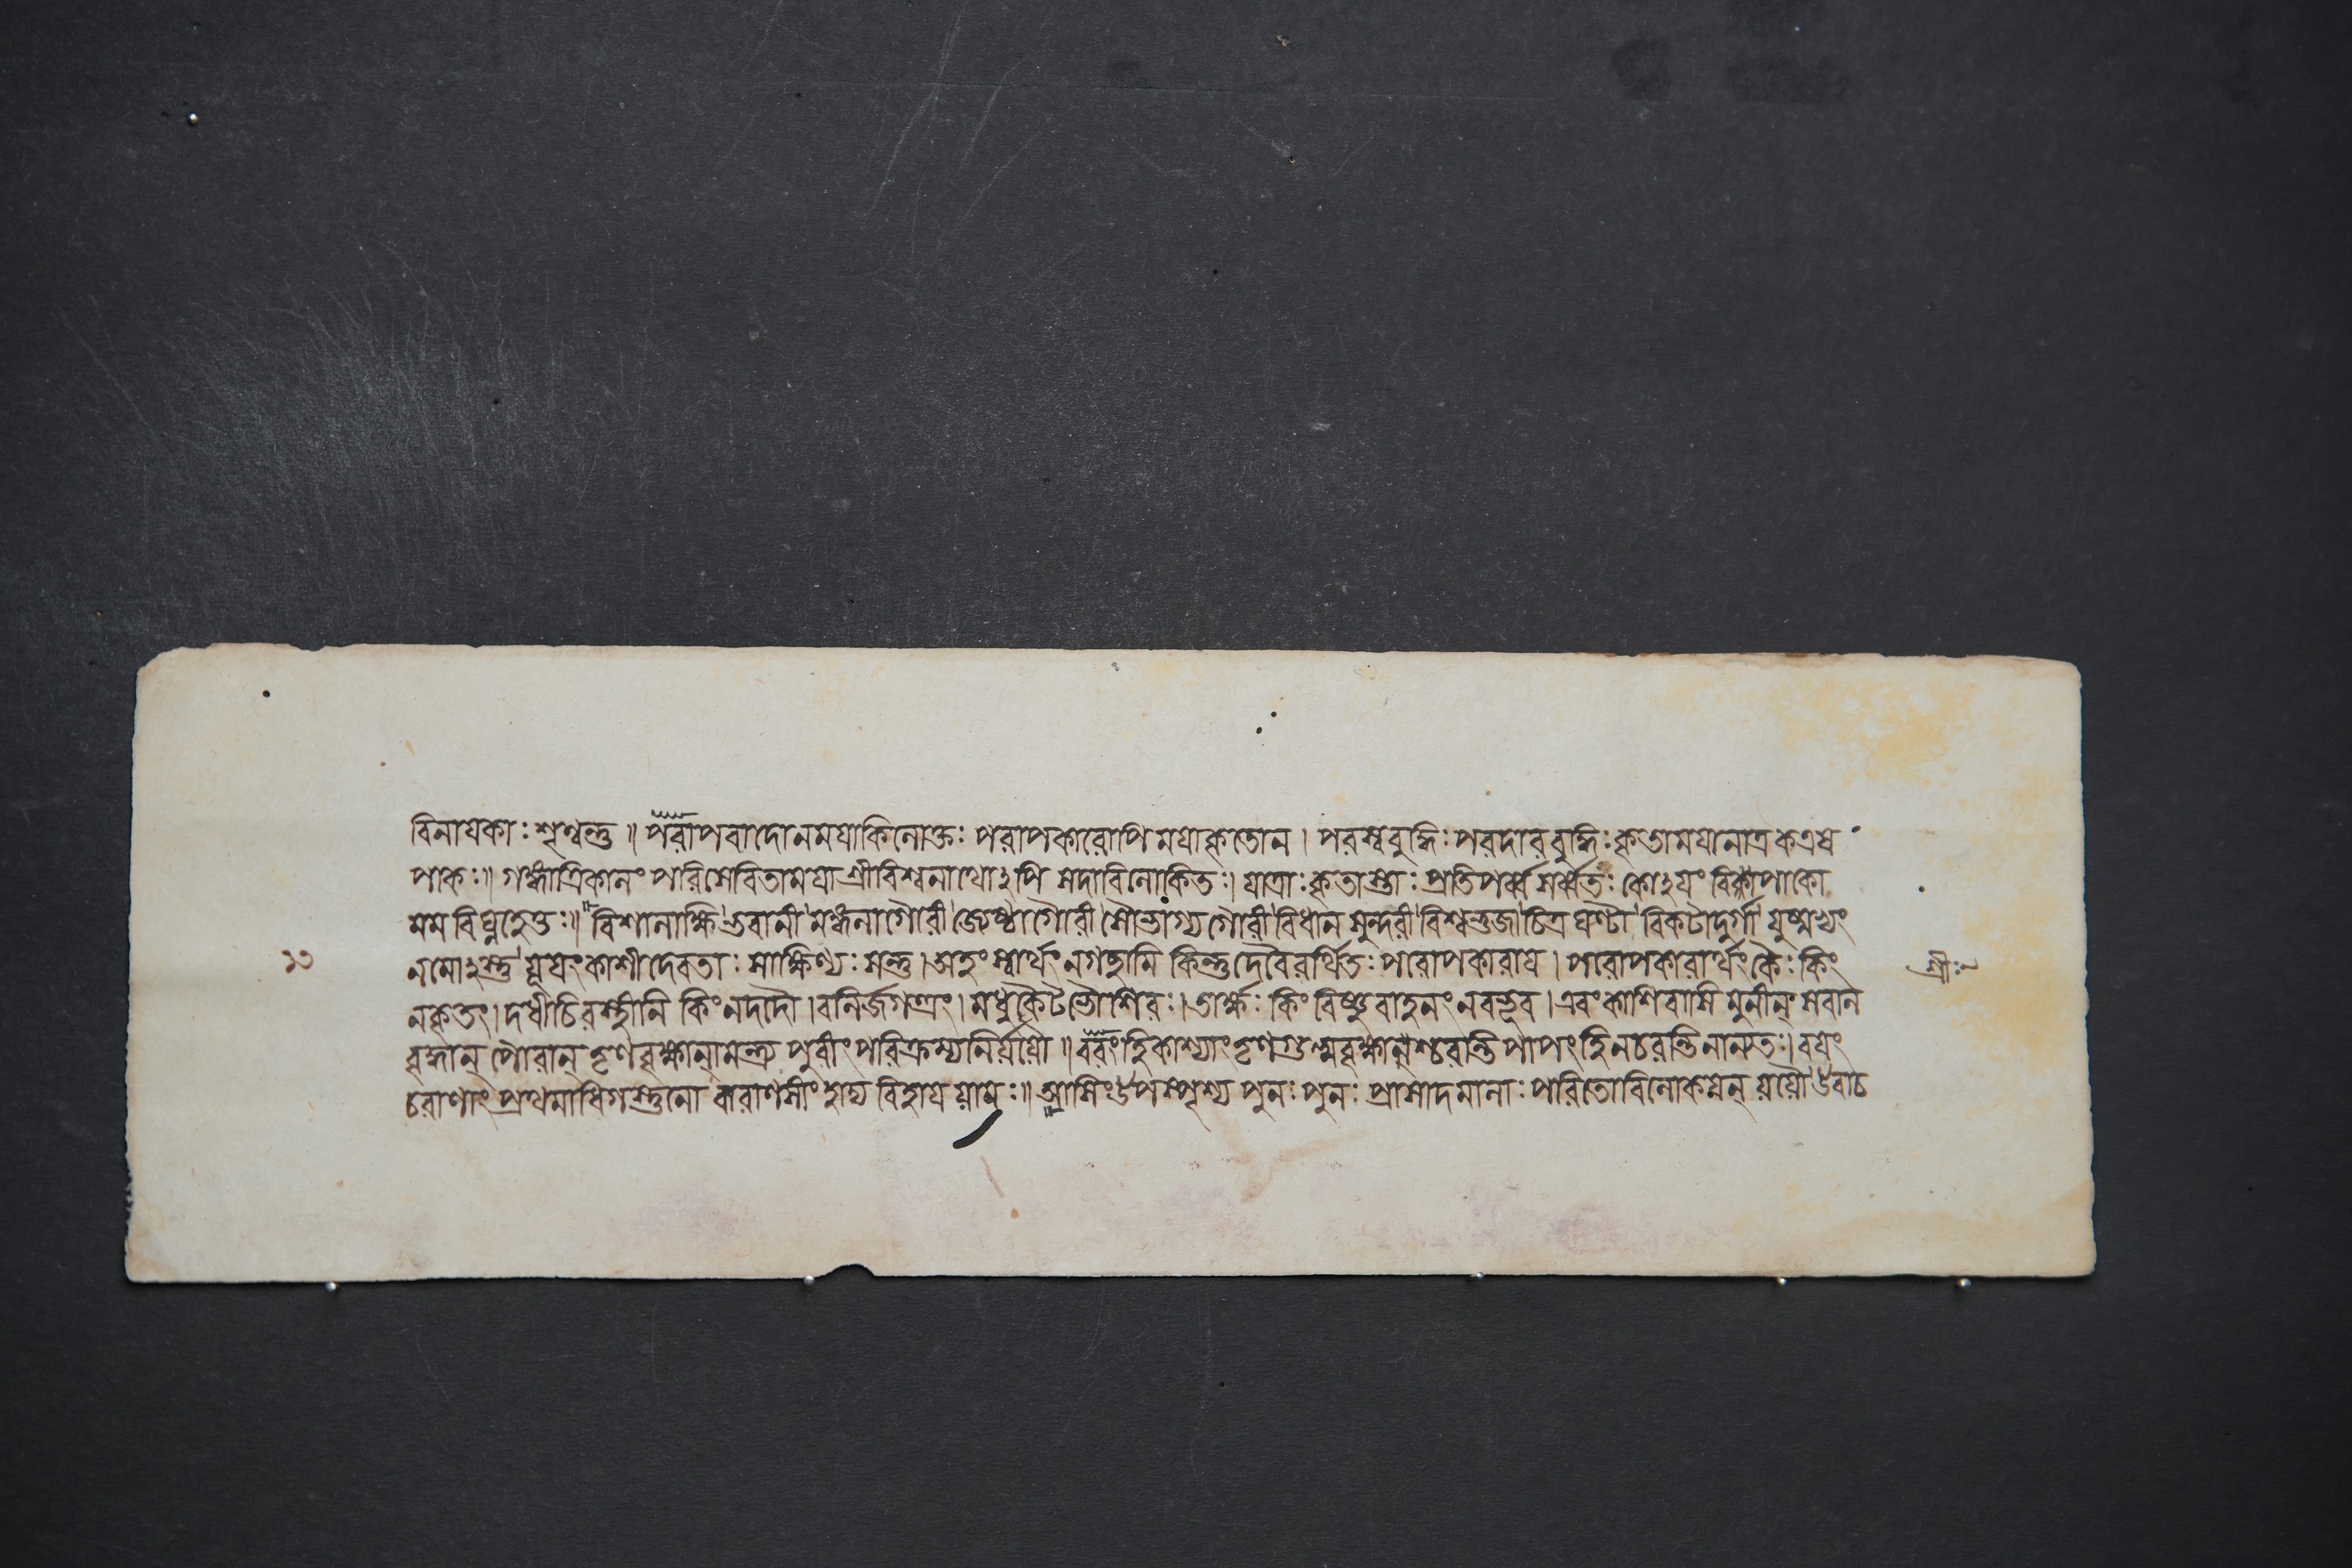 বিনায়কাঃ শৃণ্বন্তু ॥ পরাপবাদোনময়াকিলোক্তঃ পরাপকারোপি ময়াকৃতোন । পরস্ববুদ্ধিঃ পরদারবুদ্ধিঃ কৃতাময়ানাত্রকএষ
পাকঃ॥ গঙ্গাত্রিকালং পরিসেবিতাময়া শ্রীবিশ্বনাথোঽপি সদাবিলোকিতঃ। যাত্রাঃ কৃতাস্তাঃ প্রতিপর্ব্বসর্ব্বতঃ কোঽয়ং বিপাকো
মম বিঘ্নহেতুঃ॥ বিশালাক্ষি ভবানী মঙ্গলাগৌরী জ্যেষ্ঠাগৌরী সৌভাগ্যগৌরী বিধানসুন্দরী বিশ্বভুজা চিত্রঘণ্টা বিকটাদুর্গা যুষ্মভ্যং
১৩
নমোঽস্তু যূয়ং কাশীদেবতাঃ সাক্ষিণ্যঃ সন্তু । অহং স্বার্থং নগচ্ছামি কিন্তুদেবৈরর্থিতঃ পরোপকারায় । পরোপকারার্থং কৈঃ কিং
শ্রীঃ
নকৃতং। দধীচিরস্থীনি কিং নদদৌ । বলির্জগত্ত্রয়ং। মধুকৈটভৌশিরঃ। তার্ক্ষ্যঃ কিং বিষ্ণুবাহনং নবভূব । এবং কাশিবাসি মুনীন্ সবাল
বৃদ্ধান্ পৌরান্ পুরীং পরিক্রম্যনির্যযৌ ॥ বরংহিকাশ্যাং পাপংহিনচরন্তিনান্যতঃ। বয়ং
চরাণাং বারাণসীং হাদ্য বিহায় যামঃ॥ আসিং উপস্পৃশ্য পুনঃ পুনঃ প্রাসাদমালাঃ পরিতোবিলোকয়ন্ যযৌ উবাচ